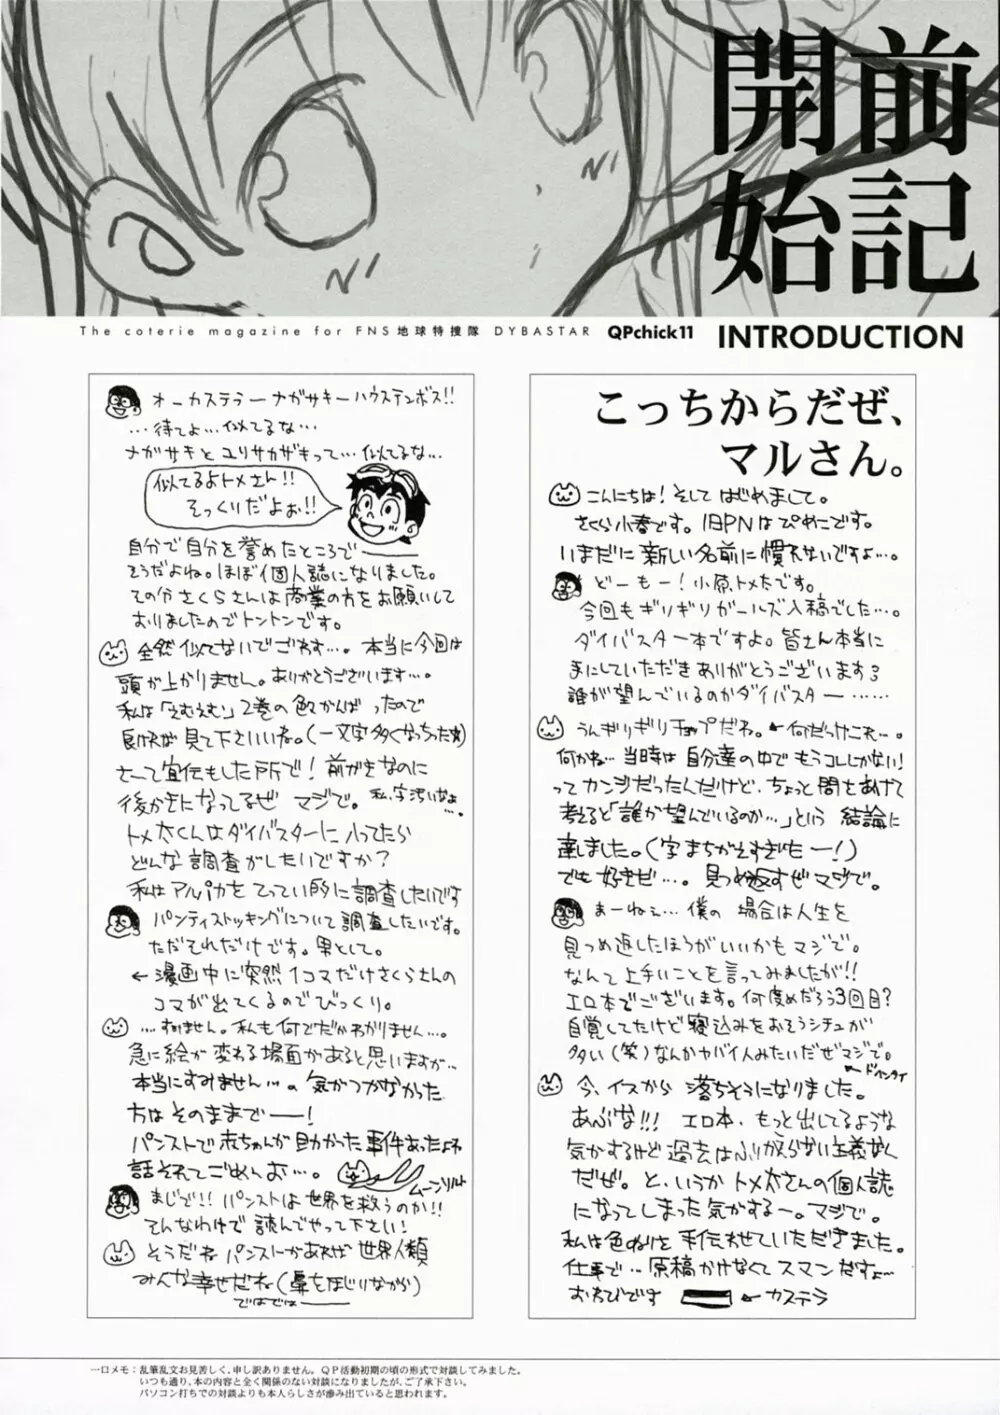 開前
始記
The coterie magazine for FNS地球特捜隊 DYBASTAR QPchick11 INTRODUCTION
こっちからだぜ、
マルさん。
こんにちは！そして はじめまして。
さくら小春です。旧PNは ぴめこです。
いまだに 新しい名前に慣れないですよ…。
どーもー！小原トメ太です。
今回もギリギリガールズ入稿でした…。
ダイバスター本ですよ。皆さん本当に
手にしていただきありがとうございます
誰が望んでいるのかダイバスター……
うんギリギリチョップだね。←何だっけこれ…。
何かね…当時は自分達の中でもうコレしかない！
ってカンジだったんだけど、ちょっと間をあけて
考えると「誰が望んでいるのか…」という 結論に
達しました。（字まちがえすぎたー！）
でも好きだ…。見つめ返すぜマジで。
まーねぇ…僕の 場合は人生を
見つめ返したほうがいいかもマジで。
なんて上手いことを言ってみましたが!!
エロ本でございます。何度めだろう3回目？
自覚してたけど寝込みをおそうシチュが
多い（笑）なんかヤバイ人みたいだぜマジで。
今、イスから 落ちそうになりました。
あぶな!!! エロ本、もっと出してるような
気がするけど過去はふりかえらない主義なく
だぜ。と、いうか トメ太さんの個人誌
になってしまった気がするー。マジで。
私は色ぬりを 手伝わせていただきました。
仕事で…原稿かけなくてスマンだすよ…
おわびです ←カステラ
オーカステラーナガサキーハウステンボス!!
…待てよ…似てるな…
ナガサキとユリサカザキって…似てるな…
似てるよトメさん!!
そっくりだよぉ!!
自分で自分を誉めたところで――
そうだよね。ほぼ個人誌になりました。
その分さくらさんは商業の方をお願いして
おりましたのでトントンです。
全然似てないでござわす…。本当に今回は
頭が上がりません。ありがとうございます…。
私は「えむえむ」2巻の色とかんばったので
良ければ 見て下さいいね。（一文字多くなっちった☆）
さーて宣伝もした所で！前がきなのに
後がきになってるぜ マジで。私、字汚いなよ…。
トメ太くんはダイバスターに入ってたら
どんな調査がしたいですか？
私はアルパカをてってい的に調査したいです
パンティストッキングについて調査したいです。
ただそれだけです。男として。
←漫画中に突然1コマだけさくらさんの
コマが出てくるのでびっくり。
…すいません。私も何でだかわかりません…。
急に絵が変わる場面があると思いますが…
本当にすみません…。気がつかなかった
方はそのままで――！
パンストで赤ちゃんが助かった事件あったよね
話それてごめんお…。
ムーンソルト
まじで!! パンストは世界を救うのか!!
そんなわけで読んでやって下さい！
そうだね パンストがあれば世界人類
みんな幸せだね（鼻をほじりながら）
ではでは――
一口メモ：乱筆乱文お見苦しく、申し訳ありません。QP活動初期の頃の形式で対談してみました。
いつも通り、本の内容と全く関係のない対談になりましたが、ご了承下さい。
パソコン打ちでの対談よりも本人らしさが滲み出ていると思われます。